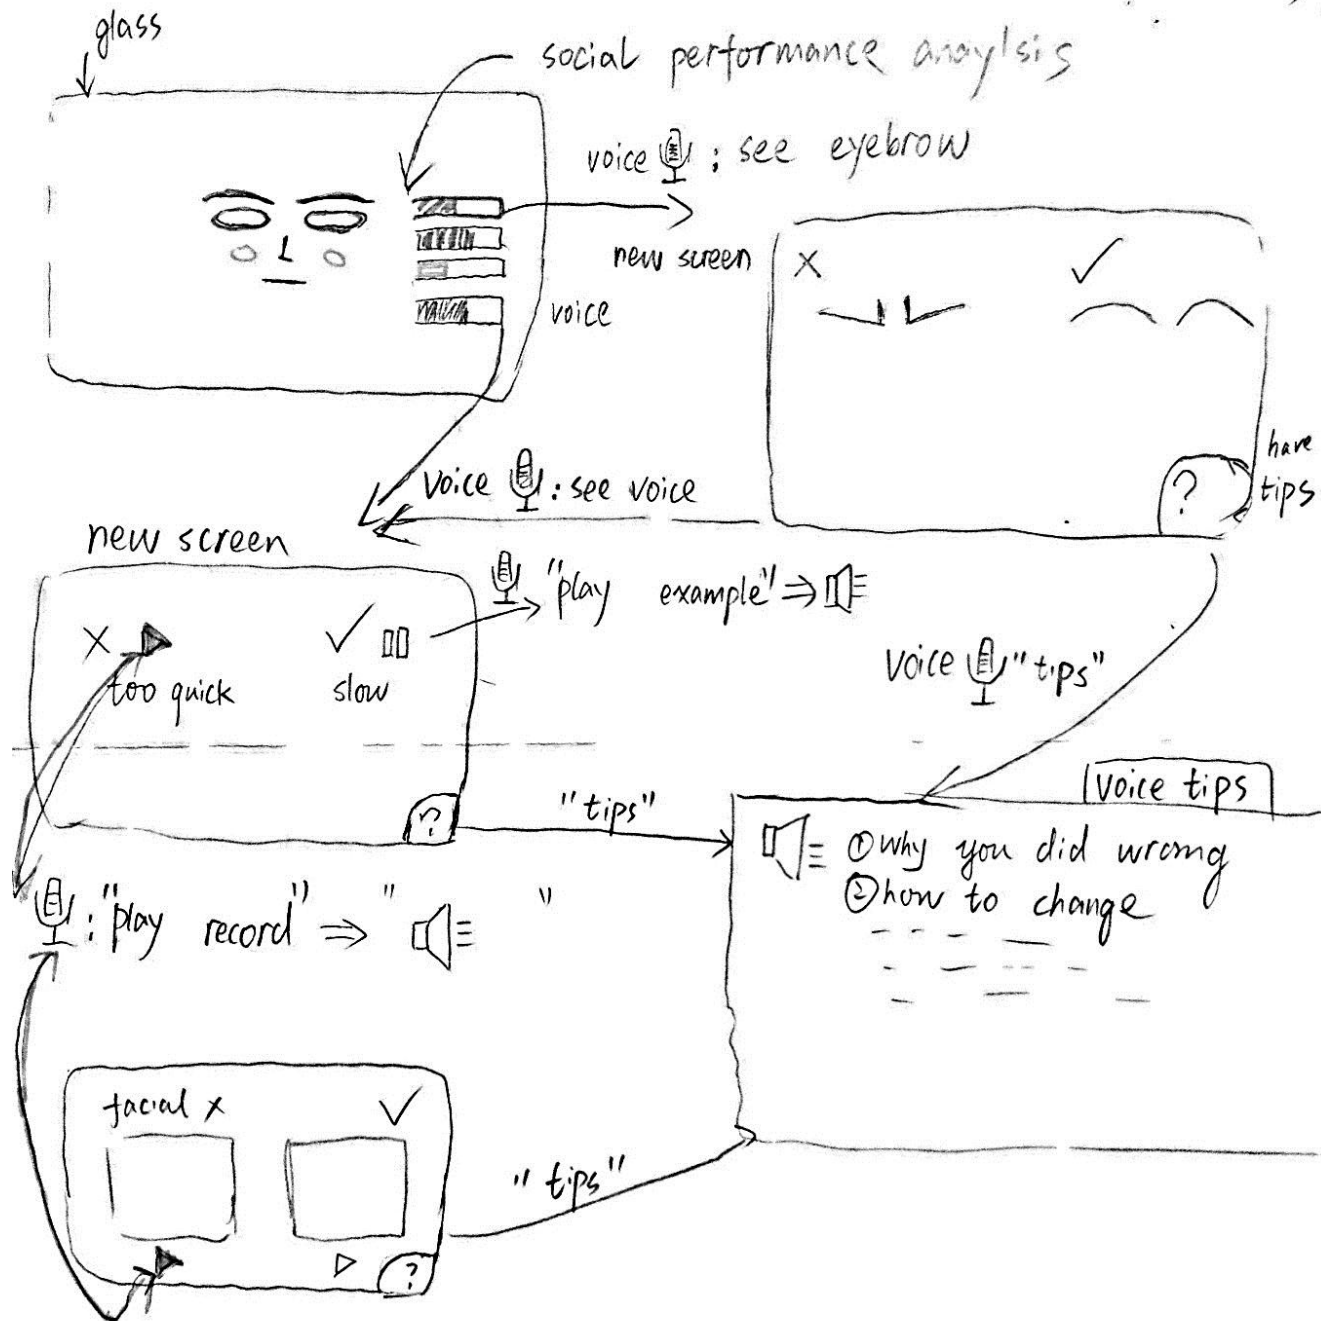 glass
social performance anaylsis
voice : see eyebrow
new screen
voice
have
tips
?
voice : see voice
new screen
"play example" ⇒
too quick
slow
voice "tips"
?
"tips"
voice tips
① why you did wrong
② how to change
: "play record" ⇒ " "
facial x
"tips"
?